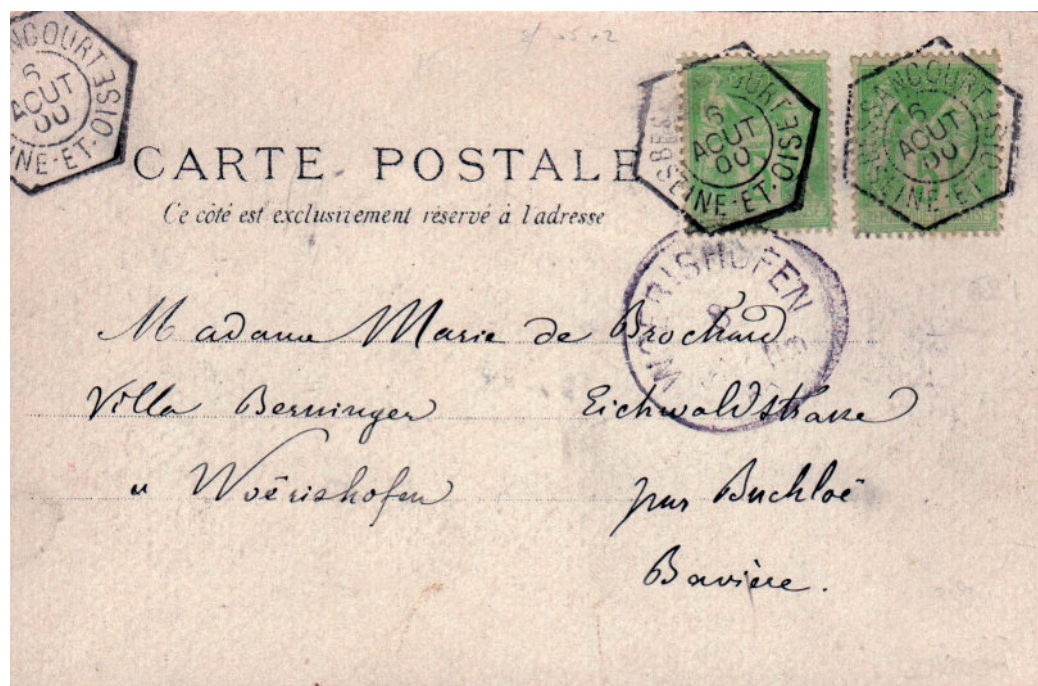 NCOURT
6
AOUT
00
SEINE-ET-OISE
BESANCOURT
6
AOUT
00
SEINE-ET-OISE
BESSANCOURT
6
AOUT
00
SEINE-ET-OISE
CARTE POSTALE
Ce côté est exclusivement réservé à l'adresse
WOERISHOFEN
8
Madame Marie de Brochard
Villa Berninger Eichwaldstrasse
Woërishofen par Buchloë
Bavière.